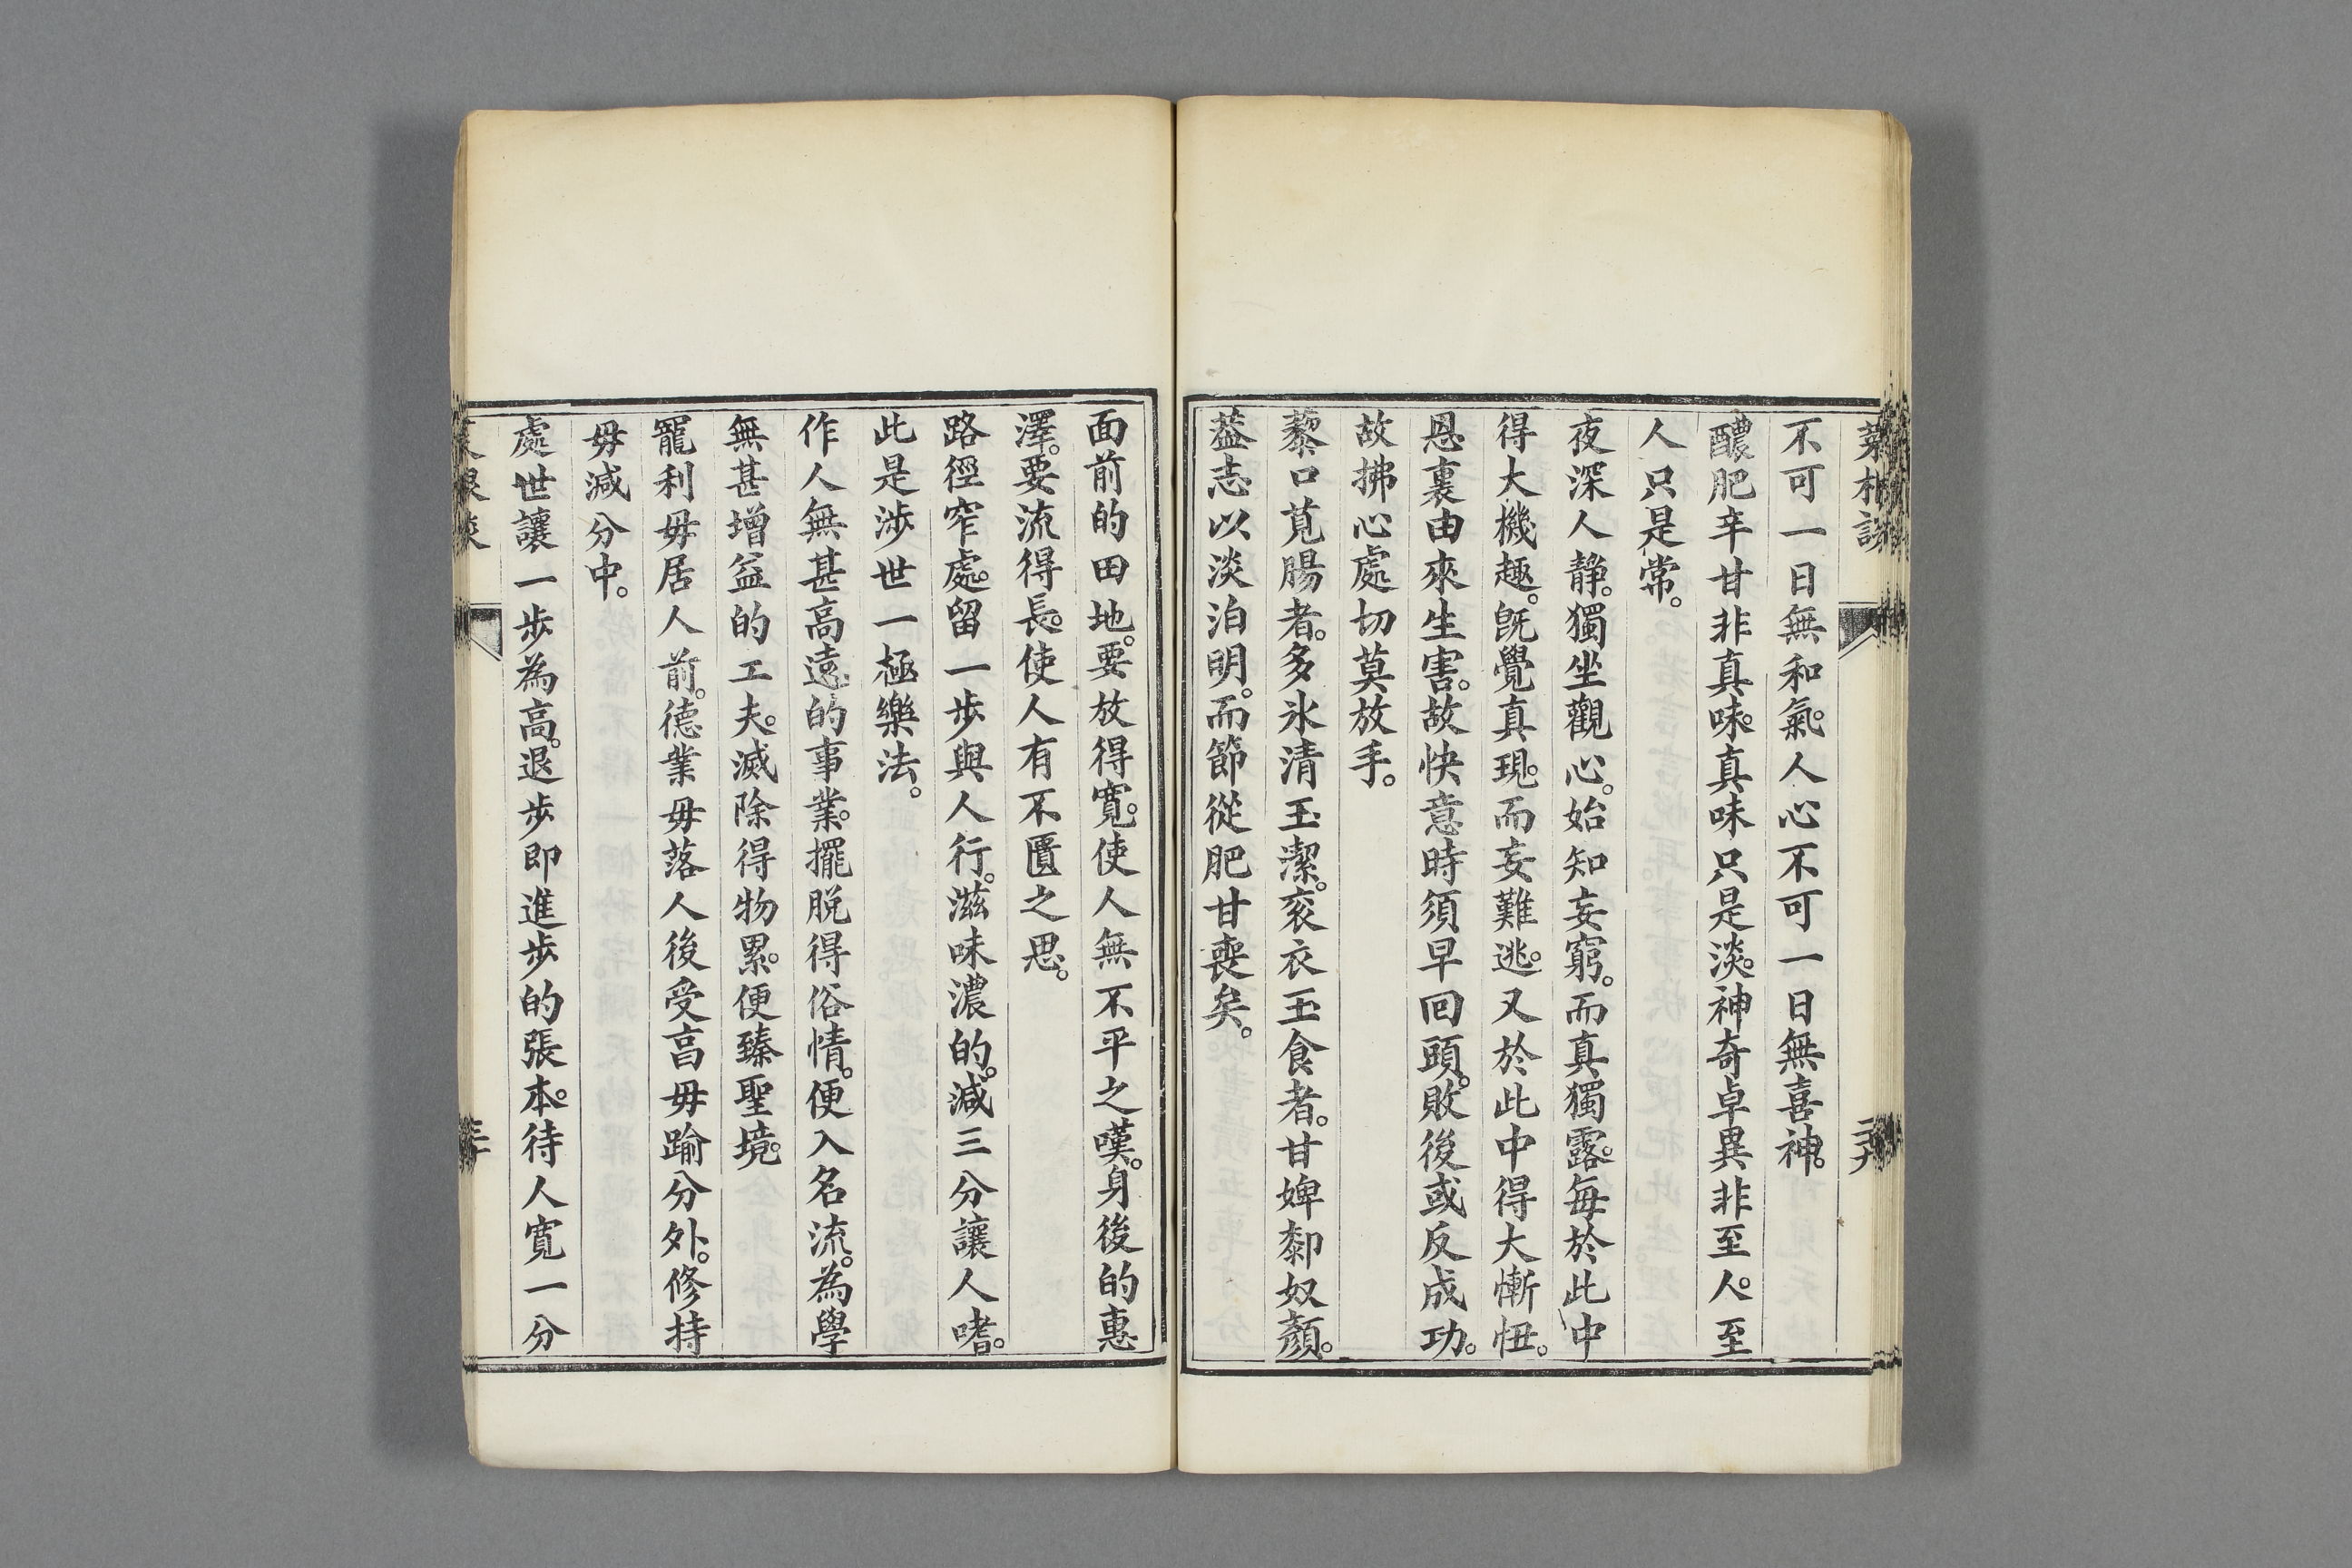 菜根談
不可一日無和氣。人心不可一日無喜神。
醲肥辛甘非真味。真味只是淡。神奇卓異非至人。至
人只是常。
夜深人静。獨坐觀心。始知妄窮。而真獨露。每於此中
得大機趣。旣覺真現。而妄難逃。又於此中得大慚忸。
恩裏由來生害。故快意時須早回頭。敗後或反成功。
故拂心處切莫放手。
藜口莧腸者。多氷清玉潔。衮衣玉食者。甘婢䣛奴顔。
葢志以淡泊明。而節從肥甘喪矣。
面前的田地。要放得寬。使人無不平之嘆。身後的惠
澤。要流得長。使人有不匱之思。
路徑窄處。留一步與人行。滋味濃的。減三分讓人嗜。
此是涉世一極樂法。
作人無甚高遠的事業。擺脱得俗情。便入名流。為學
無甚增益的工夫。減除得物累。便臻聖境。
寵利毋居人前。德業毋落人後受亯毋踰分外。修持
毋減分中。
處世讓一步為高。退步即進步的張本。待人寬一分
菜根談